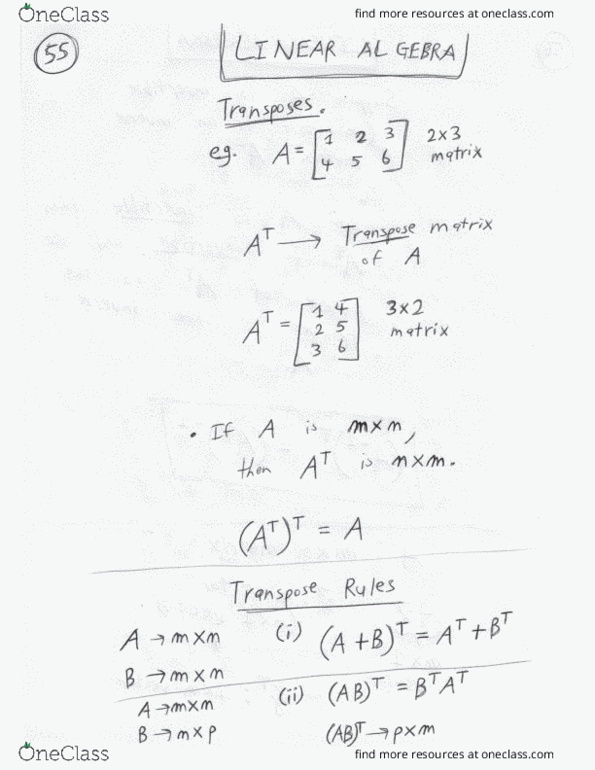 OneClass
find more resources at oneclass.com
55
LINEAR ALGEBRA
Transposes.
eg. A = [1 2 3 2x3
4 5 6] matrix
A^T → Transpose matrix
of A
A^T = [1 4 3x2
2 5 matrix
3 6]
• If A is m×n,
then A^T is n×m.
(A^T)^T = A
Transpose Rules
A → m×n (i) (A + B)^T = A^T + B^T
B → m×n
A → m×n (ii) (AB)^T = B^T A^T
B → n×p (AB)^T → p×m
OneClass
find more resources at oneclass.com